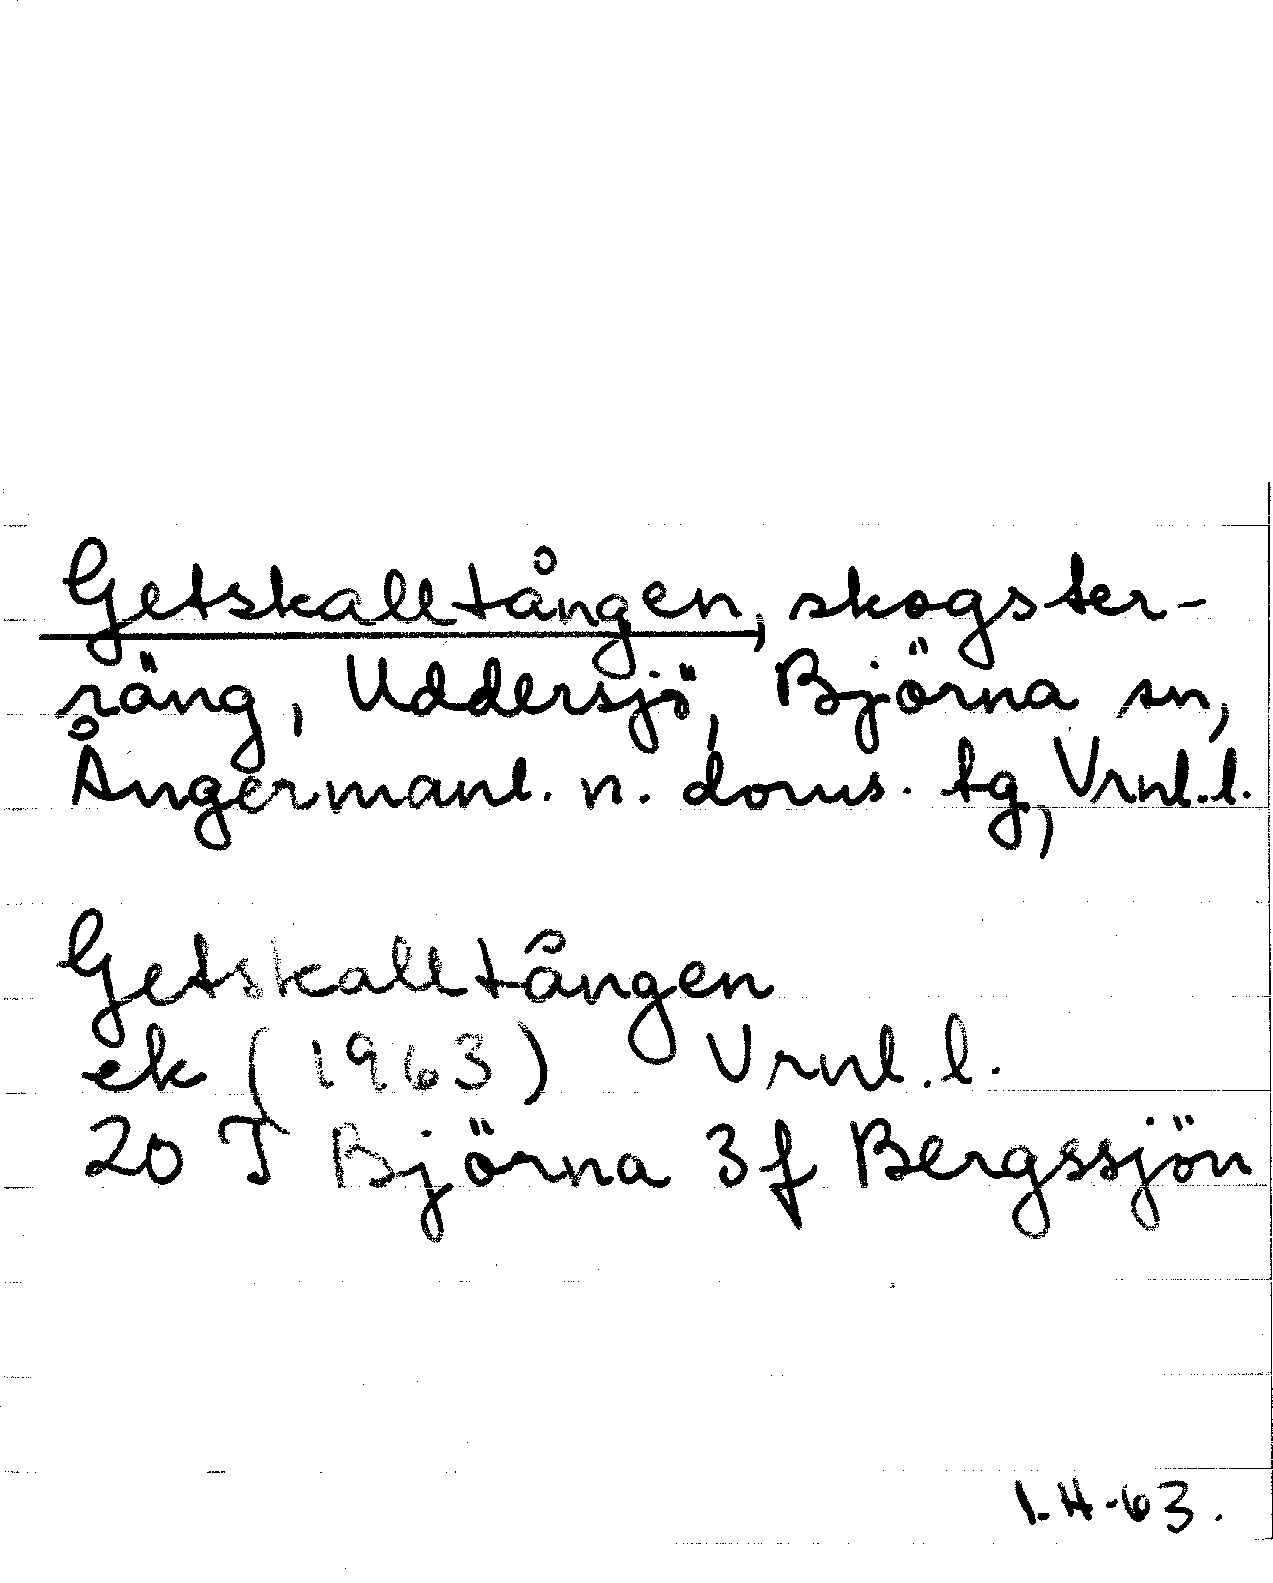 Getskalltången, skogster-
räng, Uddersjö, Björna sn,
Ångermanl. n. doms. tg, Vrnl.l.
Getskalltången
ek (1963) Vrnl.l.
20 J Björna 3f Bergssjön
I.H-63.